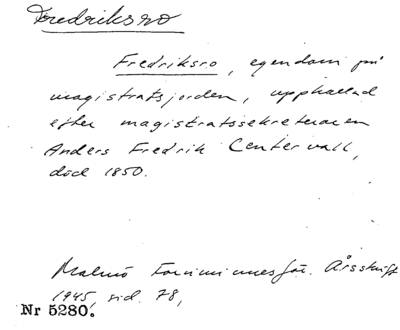 Fredriksro
Fredriksro, egendom på
magistratsjorden, uppkallad
efter magistratssekreteraren
Anders Fredrik Centervall,
död 1850.
Malmö Fornminnesför. Årsskrift
1945, sid. 78,
Nr 5280.